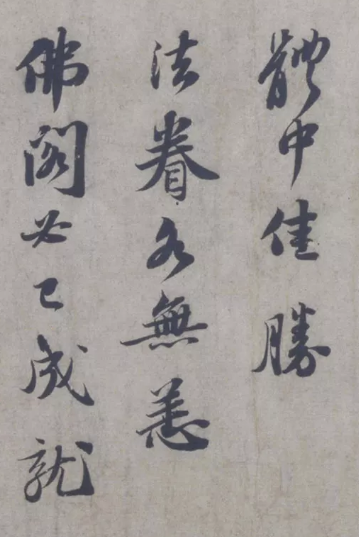 體中佳勝
法眷各無恙
佛閣必已成就